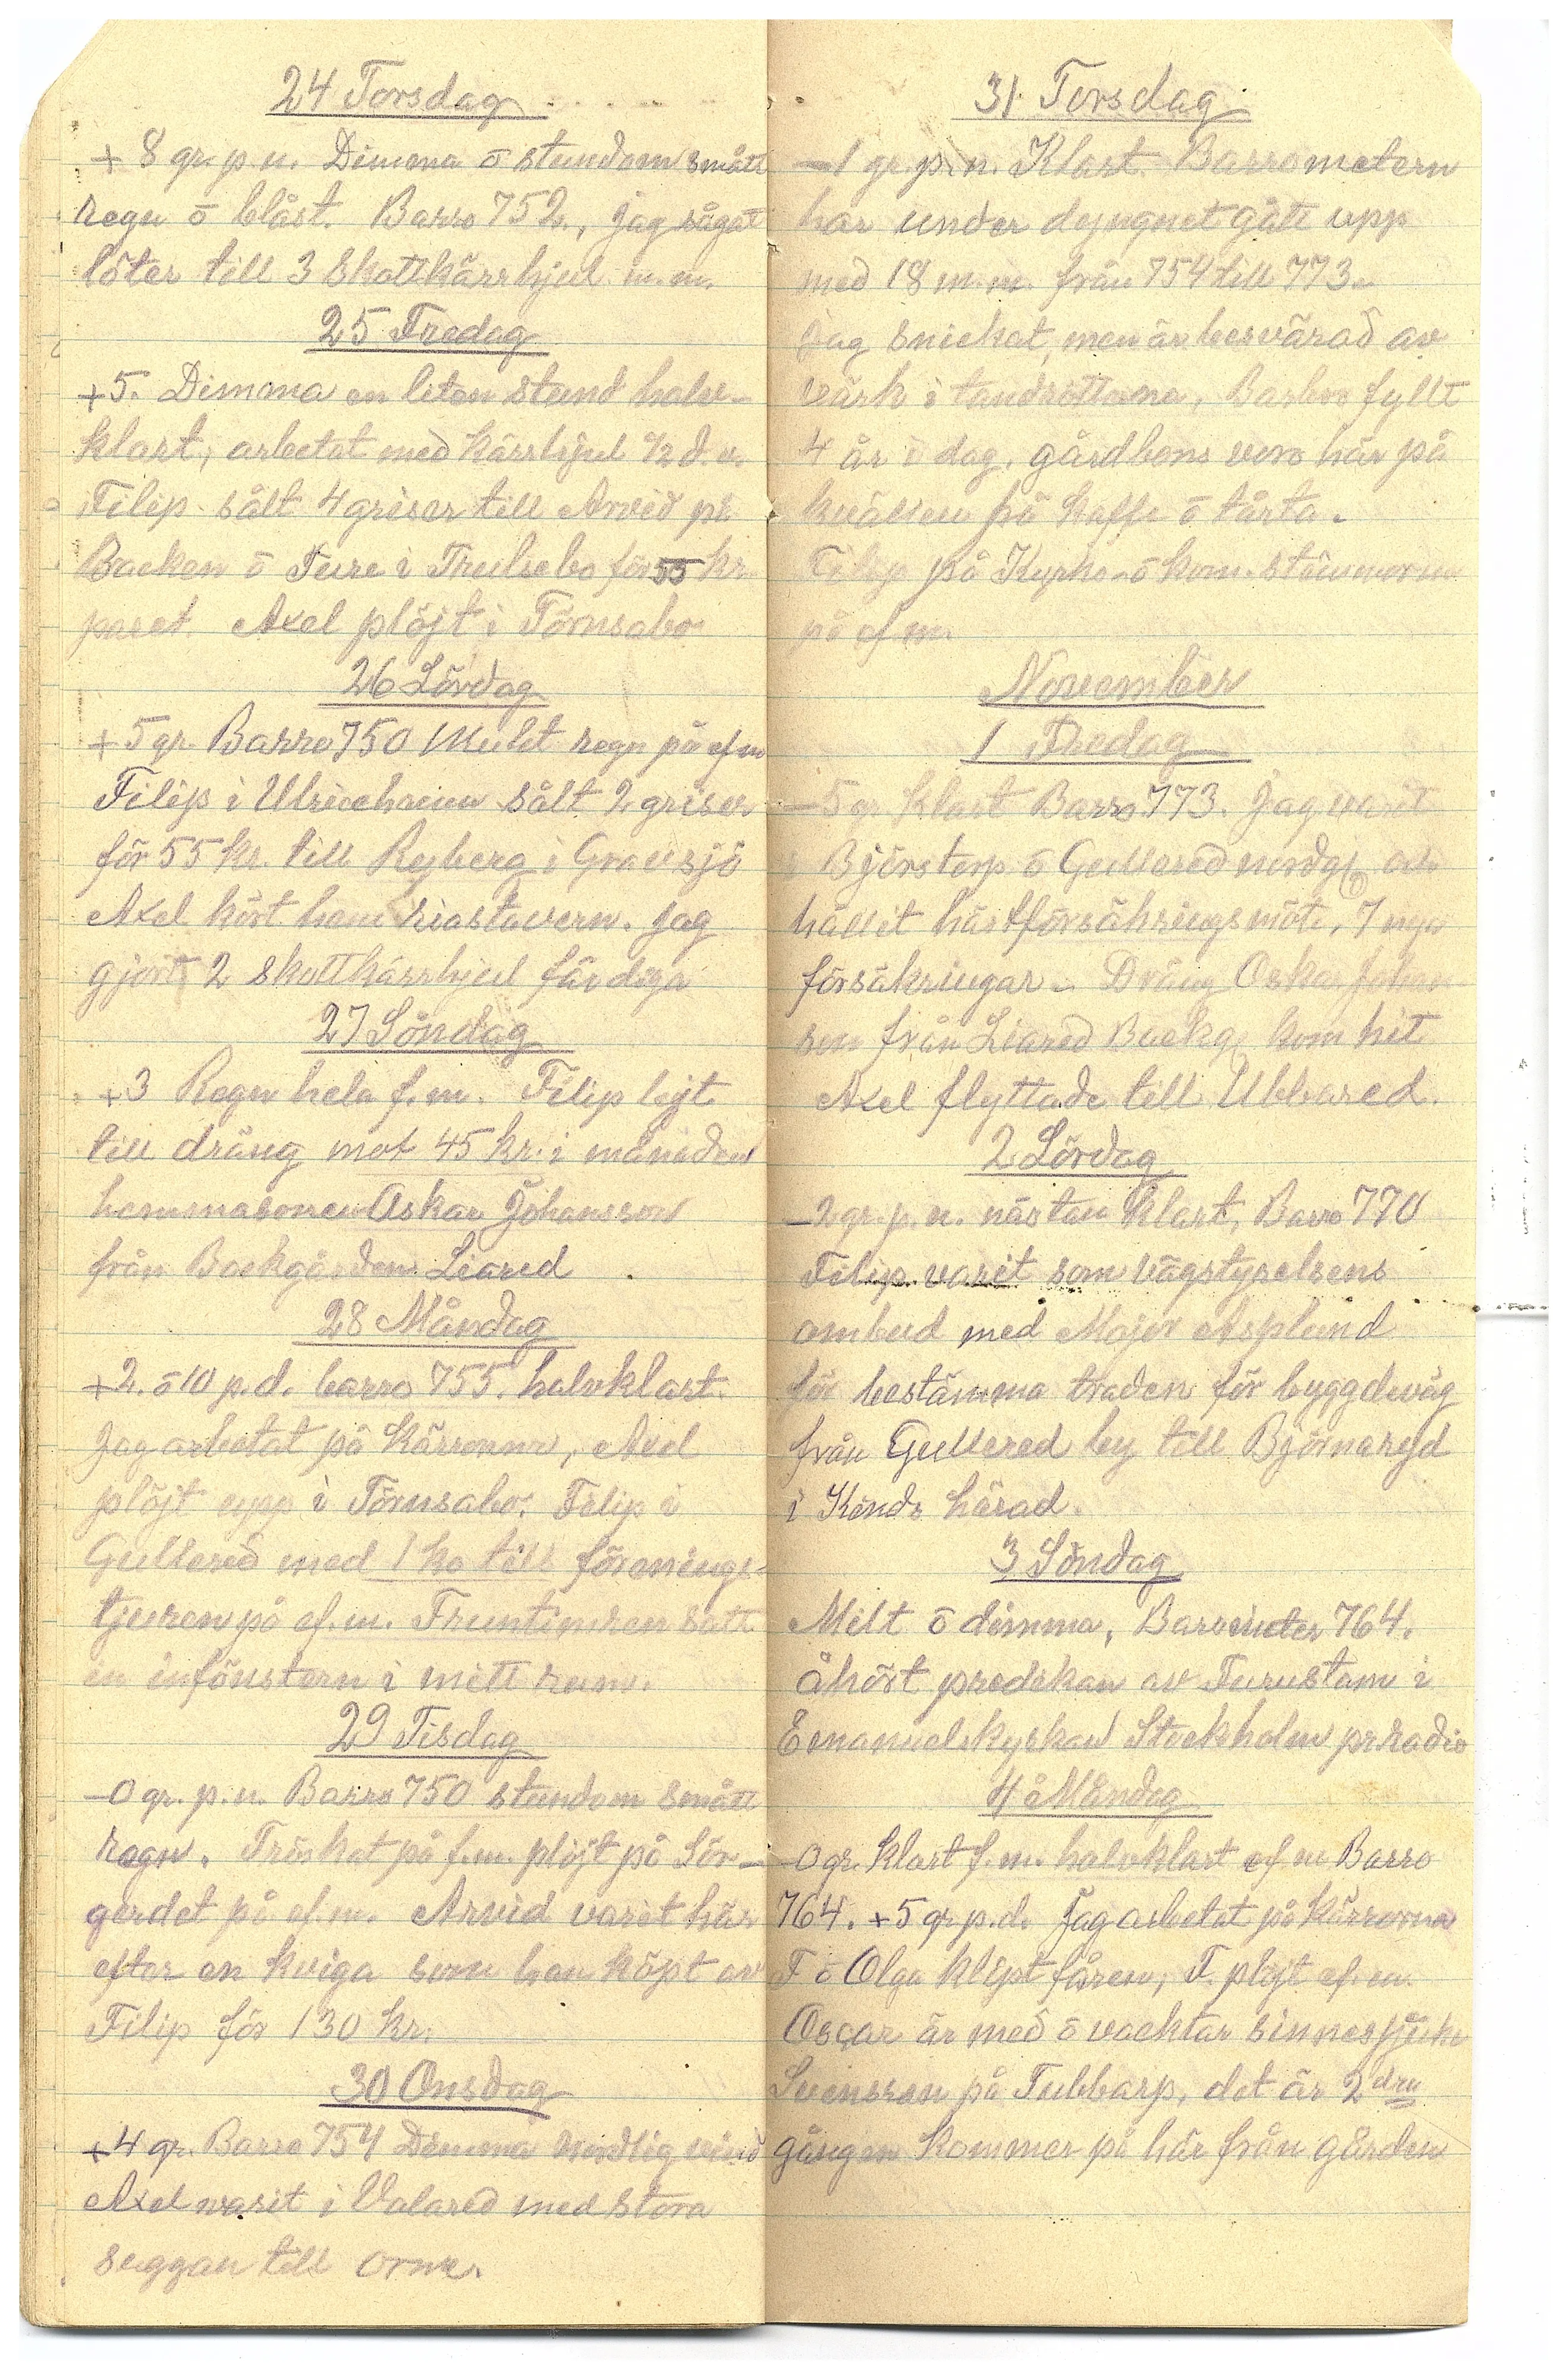 24 Torsdag
+ 8 gr. p. n. Dimma ō stundom smått
regn ō blåst. Barro 752., jag sågat
löter till 3 Skottkärrhjul m. m.
25 Fredag
+5. Dimma en liten stund halv-
klart, arbetat med kärrhjul 1/2 d. v.
Filip sålt 4 griser till Arvid på
Backen ō Ture i Trulsebo för 55 kr.
paret. Axel plöjt i Törnsabo
26 Lördag
+5 gr. Barro 750 Mulet regn på ef m
Filip i Ulricehamn sålt 2 griser
för 55 kr. till Ryberg i Gravsjö
Axel kört hem riastavern. jag
gjort 2 skottkärrhjul färdiga
27 Söndag
+3 Regn hela f. m. Filip lejt
till dräng mot 45 kr. i månaden
hemmasonen Oskar Johansson
från Backgården Liared
28 Måndag
+2. ō 10 p. d. barro 755. halvklart.
Jag arbetat på kärrorna, Axel
plöjt upp i Törnsabo. Filip i
Gullered med 1 ko till förenings-
tjuren på ef. m. Fruntimren satt
in infönstern i mitt rum.
29 Tisdag
-0 gr. p. n. Barro 750 stundom smått
regn. Tröskat på f. m. plöjt på Sör-
gerdet på ef. m. Arvid varit här
efter en kviga som han köpt av
Filip för 130 kr.
30 Onsdag
+4 gr. Barro 754 Dimma nordlig vind
Axel varit i Valared med stora
suggan till orne.
31 Torsdag
-1 gr. p. n. Klart. Barrometern
har under dejngnet gått upp
med 18 m. m. från 754 till 773.
Jag snickat, men är besvärad av
värk i tandröttorna, Barbro fyllt
4 år i dag. gårdbons voro här på
kvällen på kaffe ō tårta.
Filip på Kyrko- ō kom. stämmorna
på ef m.
November
1 Fredag
-5 gr. klart Barro 773. Jag varit
i Björstorp ō Gullered nordg. och
hållit hästförsäkringsmöte, 7 nya
försäkringar. Dräng Oskar Johan
son från Liared Backg. kom hit
Axel flyttade till Ubbared.
2 Lördag
-2 gr. p. n. nästan klart, Barro 770
Filip varit som vägstyrelsens
ombud med Major Asplund
för bestämma traden för byggdeväg
från Gullered by till Björnaryd
i Kinds härad.
3 Söndag
Milt ō dimma, Barrometer 764.
åhört predikan av Furustam i
Emanuelskyrkan Stockholm pr. Radio
4 Måndag
-0 gr. klart f. m. halvklart ef m Barro
764. +5 gr. p. d. Jag arbetat på kärrorna
F ō Olga klipt fåren, F. plöjt ef. m.
Oscar är med ō vacktar sinnessjuke
Svensson på Tubbarp, det är 2dra
gången kommer på här från gården